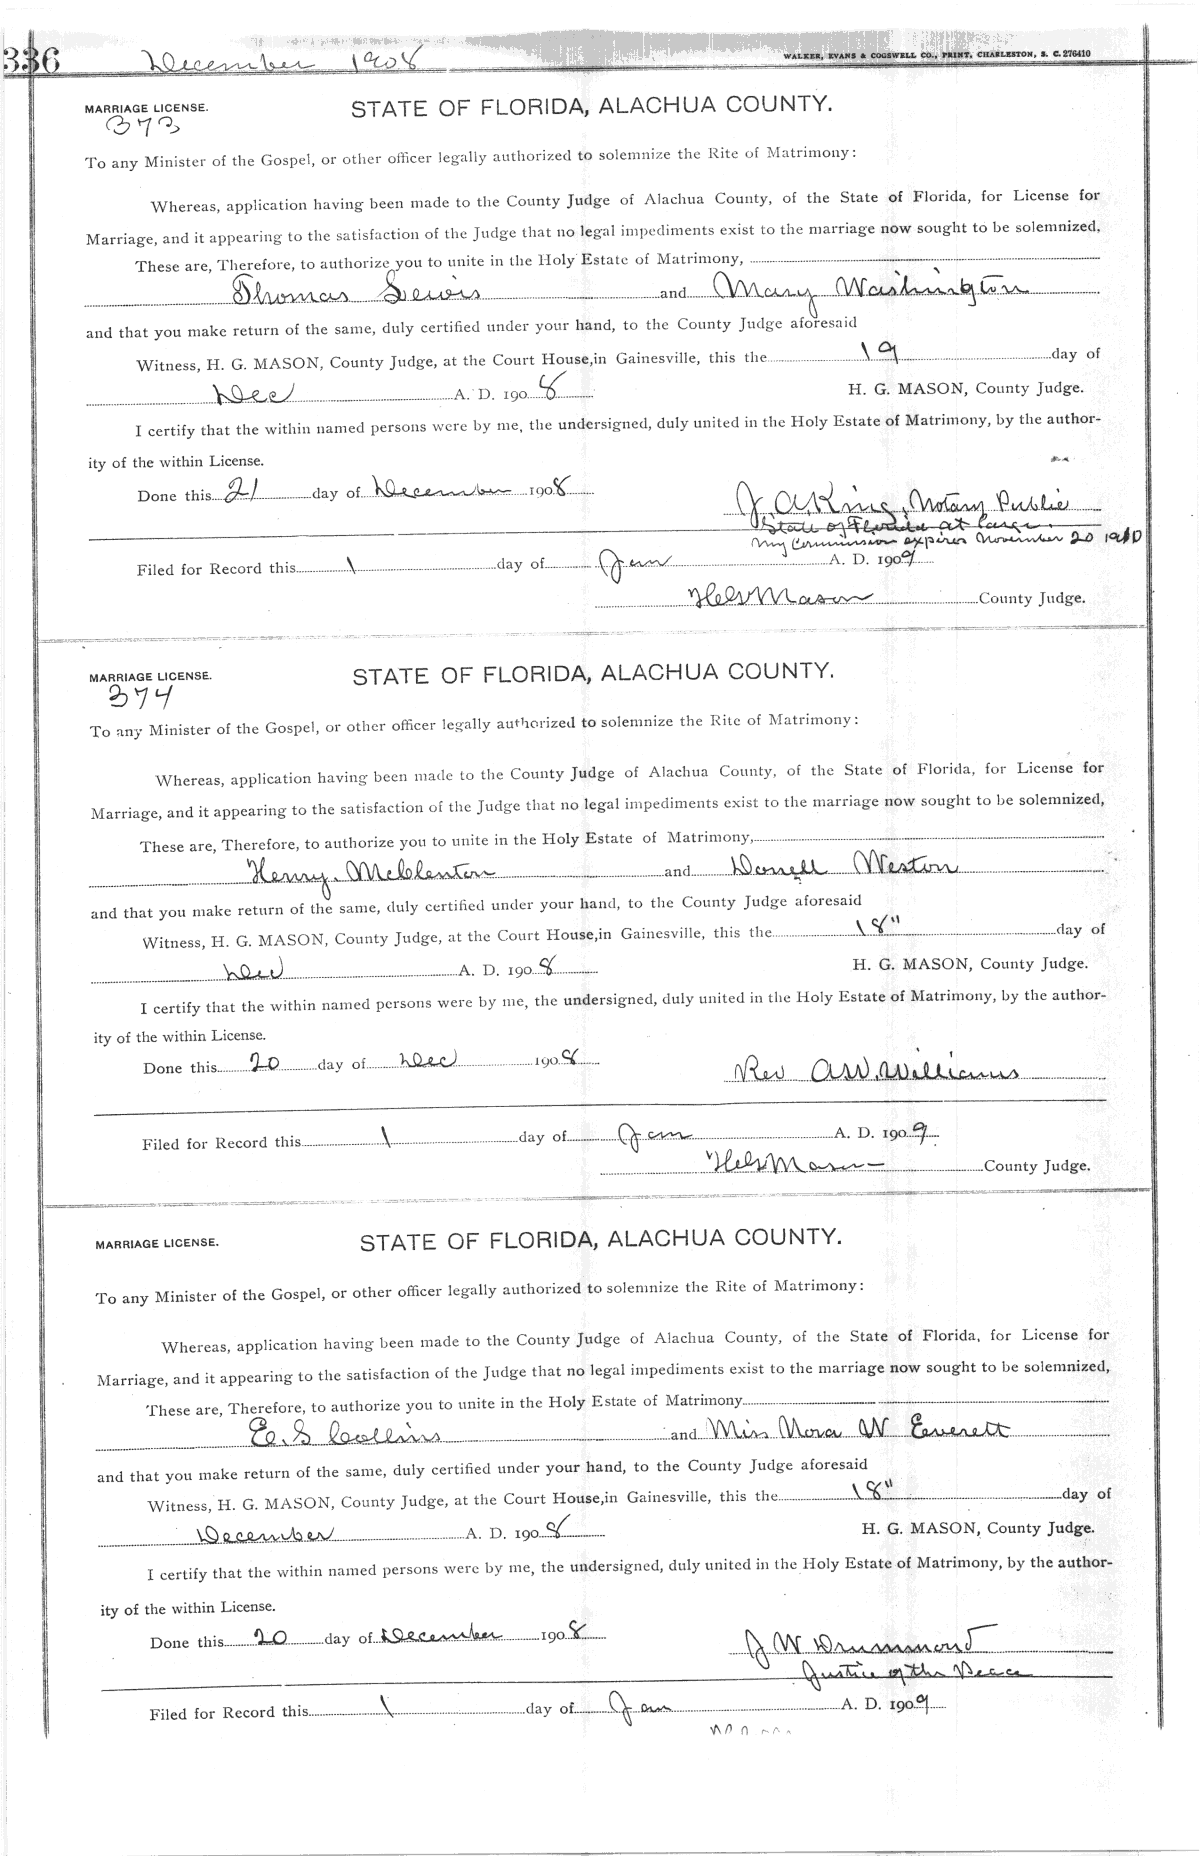 336 December 1908 WALKER, EVANS & COGSWELL CO., PRINT, CHARLESTON, S. C. 276410
MARRIAGE LICENSE. STATE OF FLORIDA, ALACHUA COUNTY.
373
To any Minister of the Gospel, or other officer legally authorized to solemnize the Rite of Matrimony:
Whereas, application having been made to the County Judge of Alachua County, of the State of Florida, for License for
Marriage, and it appearing to the satisfaction of the Judge that no legal impediments exist to the marriage now sought to be solemnized,
These are, Therefore, to authorize you to unite in the Holy Estate of Matrimony,
Thomas Lewis and Mary Washington
and that you make return of the same, duly certified under your hand, to the County Judge aforesaid
Witness, H. G. MASON, County Judge, at the Court House, in Gainesville, this the 19 day of
Dec A. D. 1908 H. G. MASON, County Judge.
I certify that the within named persons were by me, the undersigned, duly united in the Holy Estate of Matrimony, by the author-
ity of the within License.
Done this 21 day of December 1908
J. A. King, Notary Public
State of Florida at Large.
My Commission expires November 20 1910
Filed for Record this 1 day of Jan A. D. 1909
H G Mason County Judge.
MARRIAGE LICENSE. STATE OF FLORIDA, ALACHUA COUNTY.
374
To any Minister of the Gospel, or other officer legally authorized to solemnize the Rite of Matrimony:
Whereas, application having been made to the County Judge of Alachua County, of the State of Florida, for License for
Marriage, and it appearing to the satisfaction of the Judge that no legal impediments exist to the marriage now sought to be solemnized,
These are, Therefore, to authorize you to unite in the Holy Estate of Matrimony,
Henry McClenton and Donell Weston
and that you make return of the same, duly certified under your hand, to the County Judge aforesaid
Witness, H. G. MASON, County Judge, at the Court House, in Gainesville, this the 18" day of
Dec A. D. 1908 H. G. MASON, County Judge.
I certify that the within named persons were by me, the undersigned, duly united in the Holy Estate of Matrimony, by the author-
ity of the within License.
Done this 20 day of Dec 1908
Rev A. W. Williams
Filed for Record this 1 day of Jan A. D. 1909
H G Mason County Judge.
MARRIAGE LICENSE. STATE OF FLORIDA, ALACHUA COUNTY.
To any Minister of the Gospel, or other officer legally authorized to solemnize the Rite of Matrimony:
Whereas, application having been made to the County Judge of Alachua County, of the State of Florida, for License for
Marriage, and it appearing to the satisfaction of the Judge that no legal impediments exist to the marriage now sought to be solemnized,
These are, Therefore, to authorize you to unite in the Holy Estate of Matrimony
E. S Collins and Miss Nora W Everett
and that you make return of the same, duly certified under your hand, to the County Judge aforesaid
Witness, H. G. MASON, County Judge, at the Court House, in Gainesville, this the 18" day of
December A. D. 1908 H. G. MASON, County Judge.
I certify that the within named persons were by me, the undersigned, duly united in the Holy Estate of Matrimony, by the author-
ity of the within License.
Done this 20 day of December 1908
J W Drummond
Justice of the Peace
Filed for Record this 1 day of Jan A. D. 1909